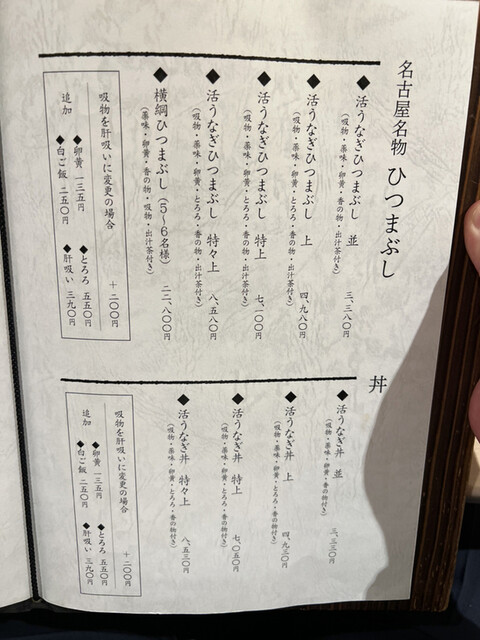 名古屋名物 ひつまぶし
◆活うなぎひつまぶし 並 三、三八〇円
（吸物・薬味・卵黄・とろろ・香の物・出汁茶付き）
◆活うなぎひつまぶし 上 四、九八〇円
（吸物・薬味・卵黄・とろろ・香の物・出汁茶付き）
◆活うなぎひつまぶし 特上 七、一〇〇円
（吸物・薬味・卵黄・とろろ・香の物・出汁茶付き）
◆活うなぎひつまぶし 特々上 八、五八〇円
（吸物・薬味・卵黄・とろろ・香の物・出汁茶付き）
◆横綱ひつまぶし（5〜6名様） 二二、八〇〇円
（薬味・卵黄・香の物・吸物・出汁茶付き）
吸物を肝吸いに変更の場合 ＋二〇〇円
追加
◆卵黄 一三五円 ◆とろろ 五五〇円
◆白ご飯 二五〇円 ◆肝吸い 三九〇円
丼
◆活うなぎ丼 並 三、三三〇円
（吸物・薬味・卵黄・とろろ・香の物付き）
◆活うなぎ丼 上 四、九三〇円
（吸物・薬味・卵黄・とろろ・香の物付き）
◆活うなぎ丼 特上 七、〇五〇円
（吸物・薬味・卵黄・とろろ・香の物付き）
◆活うなぎ丼 特々上 八、五三〇円
（吸物・薬味・卵黄・とろろ・香の物付き）
吸物を肝吸いに変更の場合 ＋二〇〇円
追加
◆卵黄 一三五円 ◆とろろ 五五〇円
◆白ご飯 二五〇円 ◆肝吸い 三九〇円